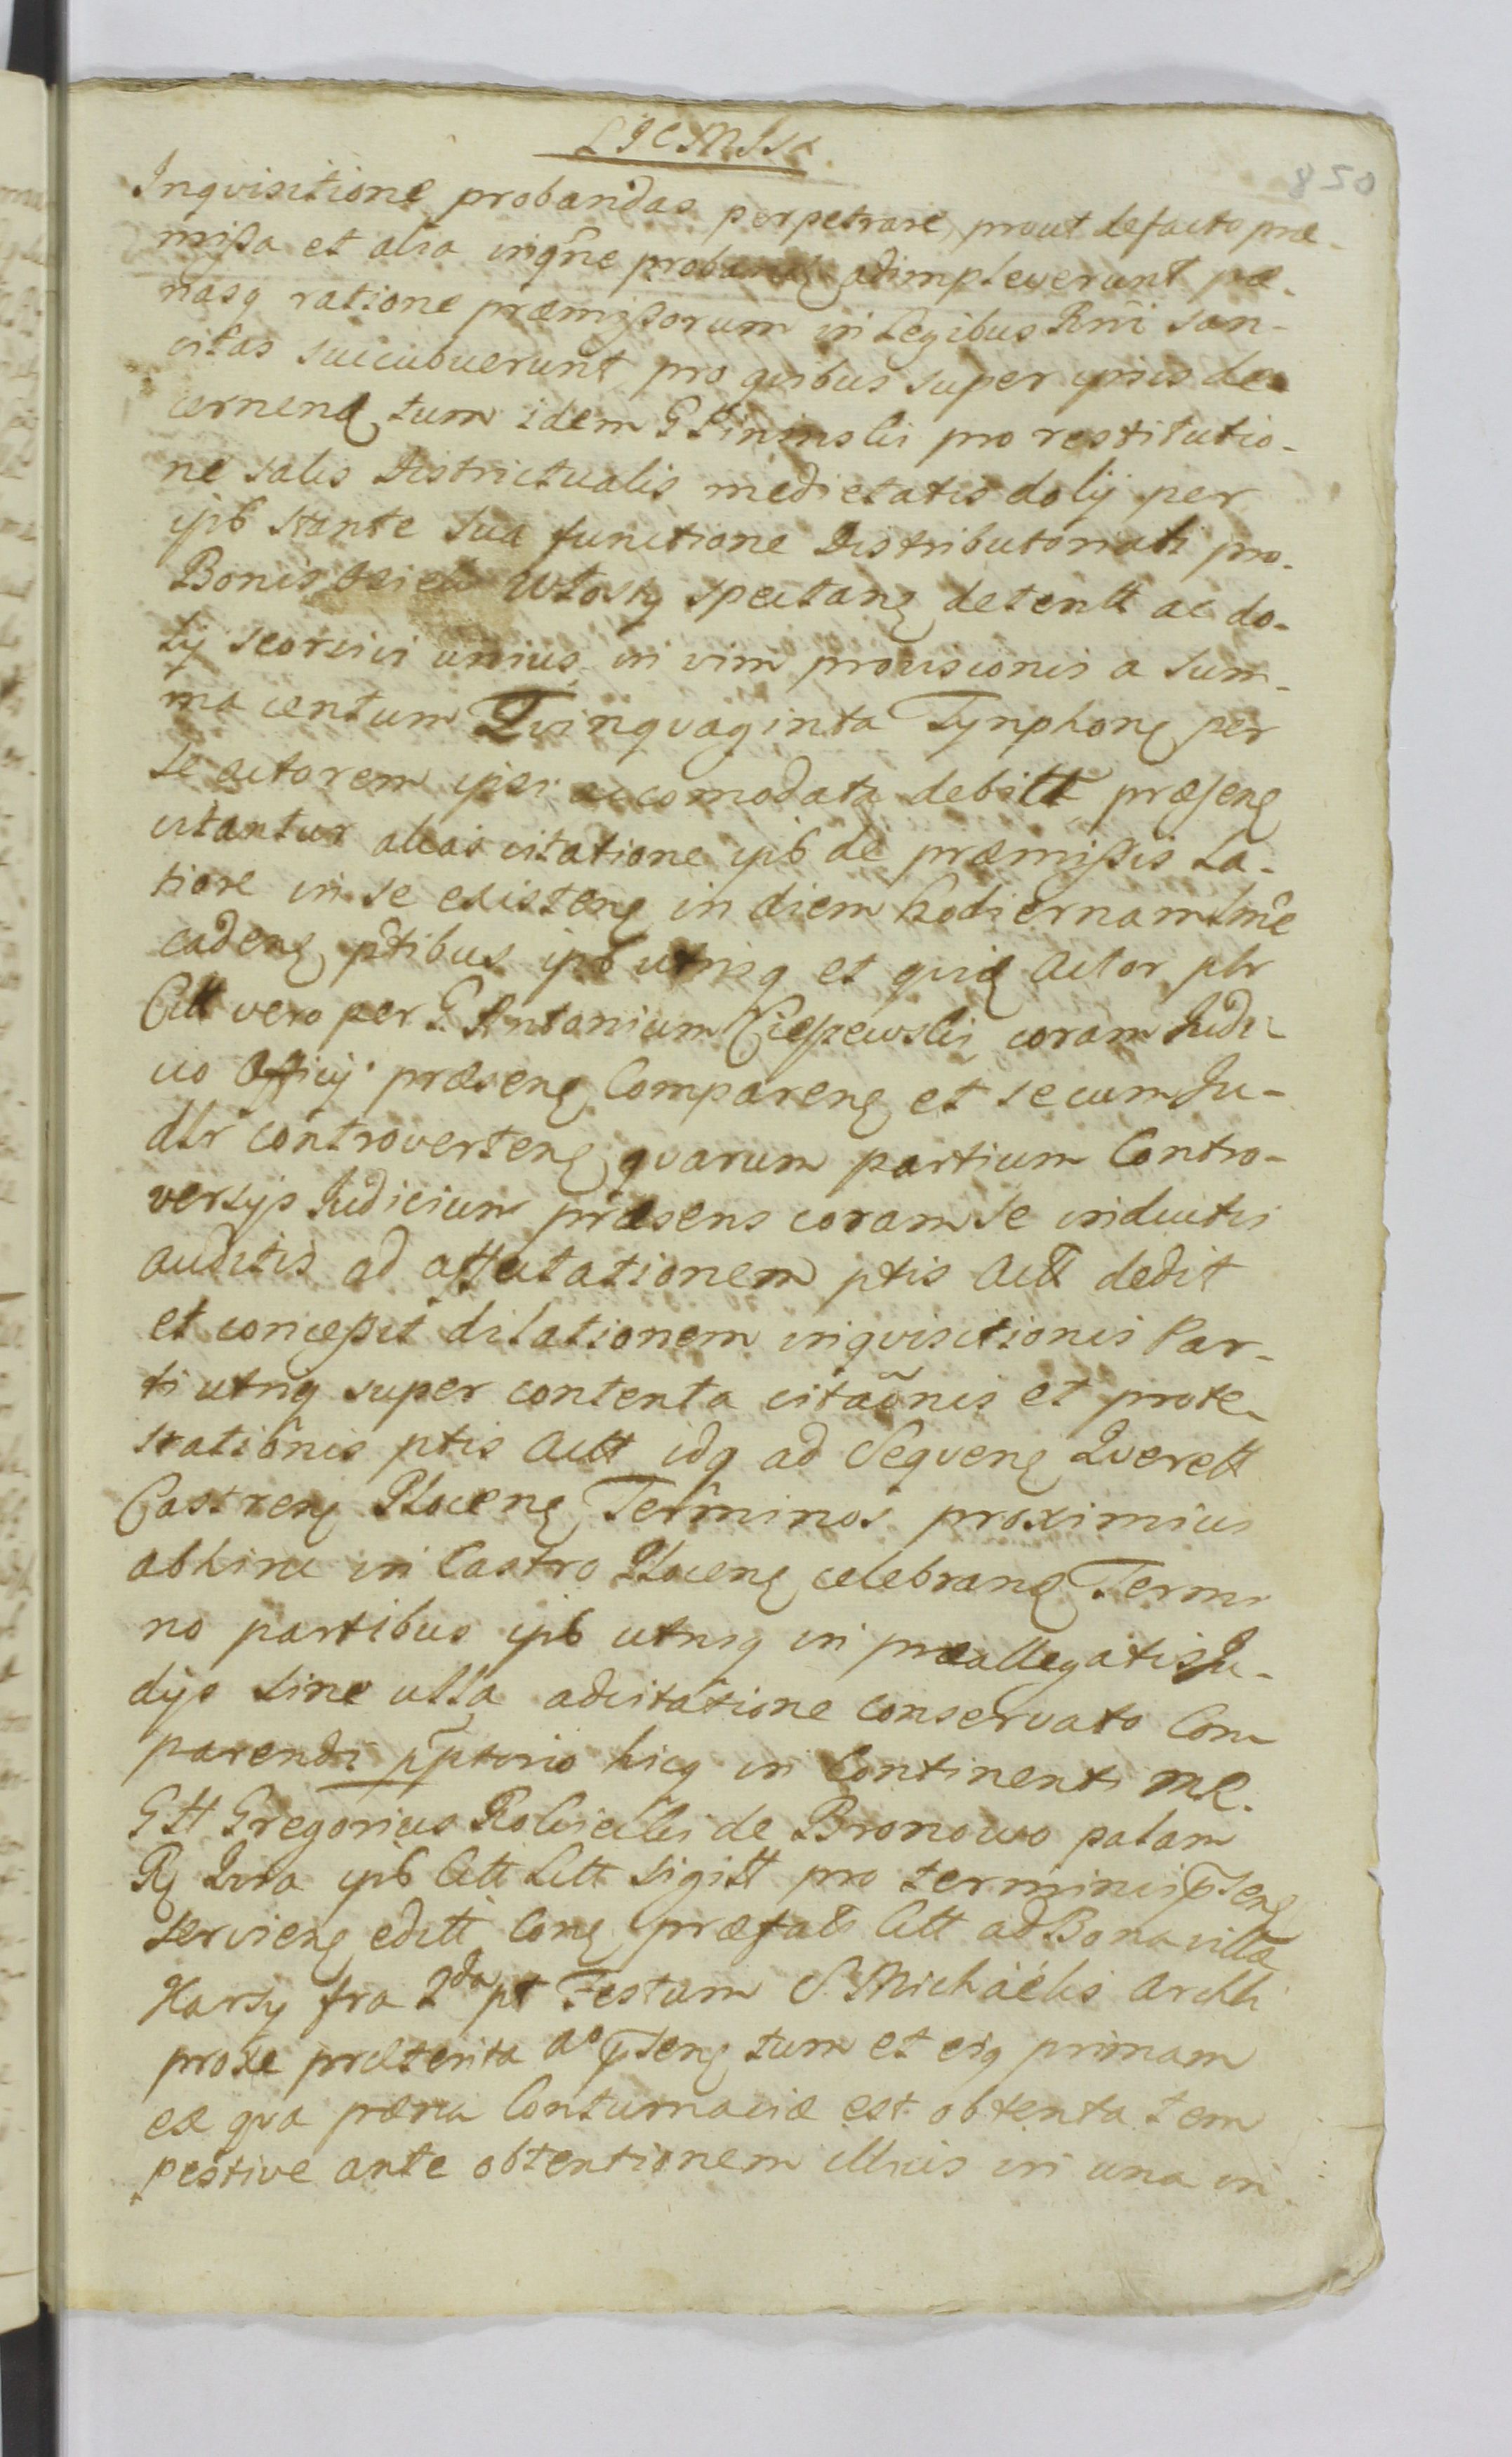 850
Inqvisitione probandas perpetrare, prout de facto præ-
missa et alia inqñe proband adimpleverunt pæ-
nasq ratione præmissorum in Legibus Rñi san-
citas succubuerunt, pro qvibus super ipsis de-
cernend, tum idem G Pininski pro restitutio-
ne salis Districtualis medietatis dolij per
ipß stante sua functione Distributoriati pro
Bonis Wlosty spectang detentt ac do-
lij seorsivi unius in vim provisionis a sum-
ma centum Qvinqvaginta Tynphong per
se actorem ipsi accomodata debitt præseng
citantur alias citatione ipß de præmissis La-
tiore in se existeng in diem hodiernam
cadeng ptibus ipß utrisq et qvid Actor plr
Citt vero per G. Antonium Ciessewski coram Judi-
cio Officij præseng Compareng et secum Ju-
dlr controverteng qvarum partium Contro-
versijs Judicium præsens coram se inductis
auditis ad affectationem ptis Actt dedit
et concessit dilationem inqvisitionis Par-
ti utriq super contenta citaõnis et prote-
stationis ptis Actt idq ad Seqveng Qverell
Castreng Ploceng Terminos proximius
abhinc in Castro Ploceng celebrang Termi
no partibus ipß utrisq in præallegatis Ju-
dijs sine ulla adcitatione conservato Com
parendi pptorio hicq in Continenti me.
G H Gregorius Rokicki de Bronowo palam
Rg Qvia ipß Citt Litt sigitt pro terminis pseng
servieng editt Cong præfat Citt ad Bona villæ
Karsy fra 2da pt Festum S. Michaëlis Archli
proxe præterita ao pseng tum et eiq primam
ex qva pæna Contumaciæ est obtenta tem
pestive ante obtentionem illius in una in